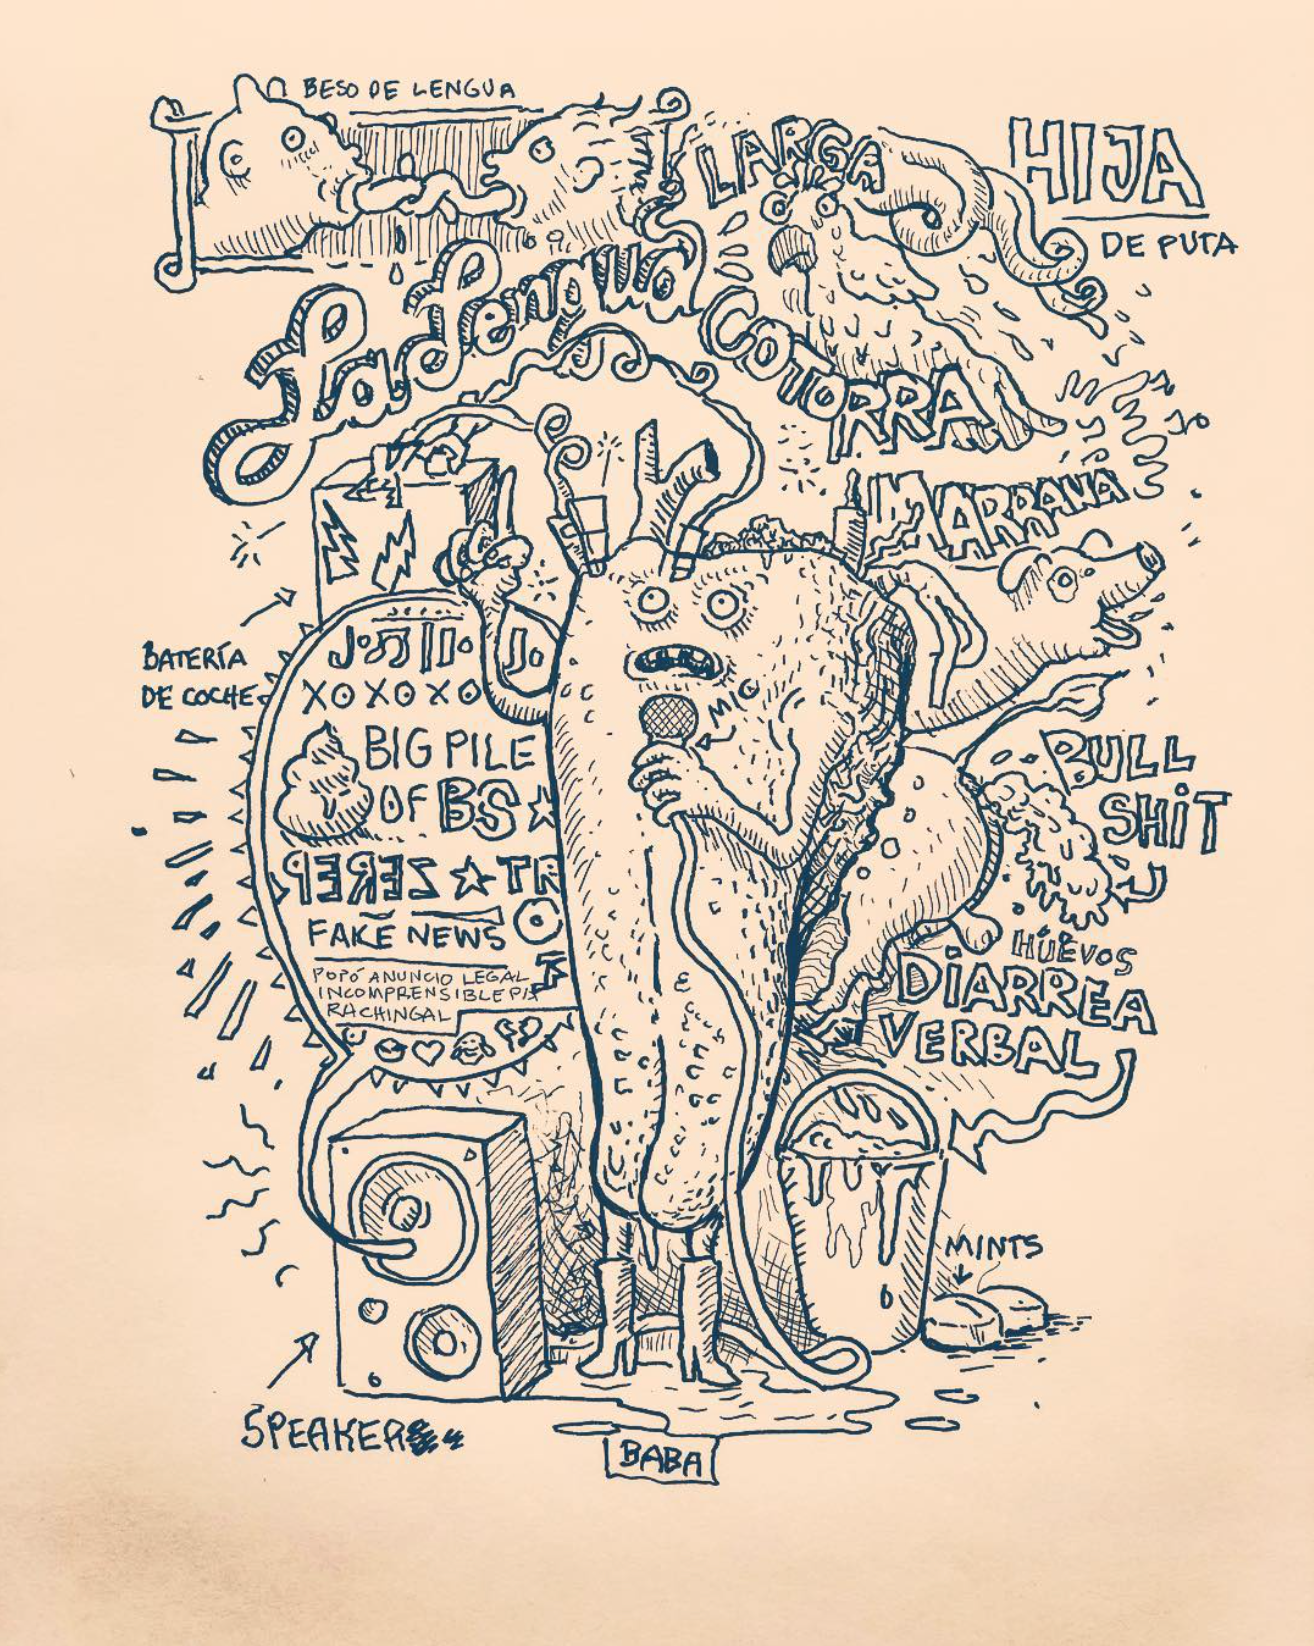 BESO DE LENGUA
La Lengua
LARGA
HIJA
DE PUTA
COTORRA
MARRANA
BATERÍA
DE COCHE
MIC
XOXOXO
BIG PILE
OF BS
PEREZ TR
FAKE NEWS
POPÓ ANUNCIO LEGAL
INCOMPRENSIBLE PI
RACHINGAL
BULL
SHIT
HÜEVOS
DIARREA
VERBAL
MINTS
SPEAKER
BABA